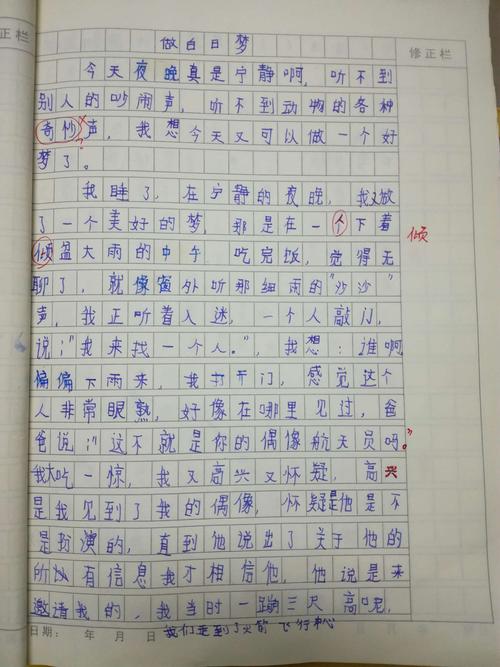 做白日梦
修正栏
今天夜晚真是宁静啊，听不到
别人的吵闹声，听不到动物的各种
奇妙声，我想今天又可以做一个好
梦了。
我睡了，在宁静的夜晚，我又做
了一个美好的梦，那是在一个下着
倾盆大雨的中午 吃完饭，觉得无
倾
聊了，就像窗外听那细雨的“沙沙”
声，我正听着入迷，一个人敲门，
说：“我来找一个人。”，我想：谁啊
偏偏下雨来，我打开门，感觉这个
人非常眼熟，好像在哪里见过，爸
爸说：“这不就是你的偶像航天员吗。”
我大吃一惊，我又高兴又怀疑，高兴
是我见到了我的偶像，怀疑是他是不
是扮演的，直到他说出了关于他的
所有信息我才相信他，他说是来
邀请我的，我当时一蹦三尺高呢，
日期： 年 月 日 我们走到了火箭飞行中心